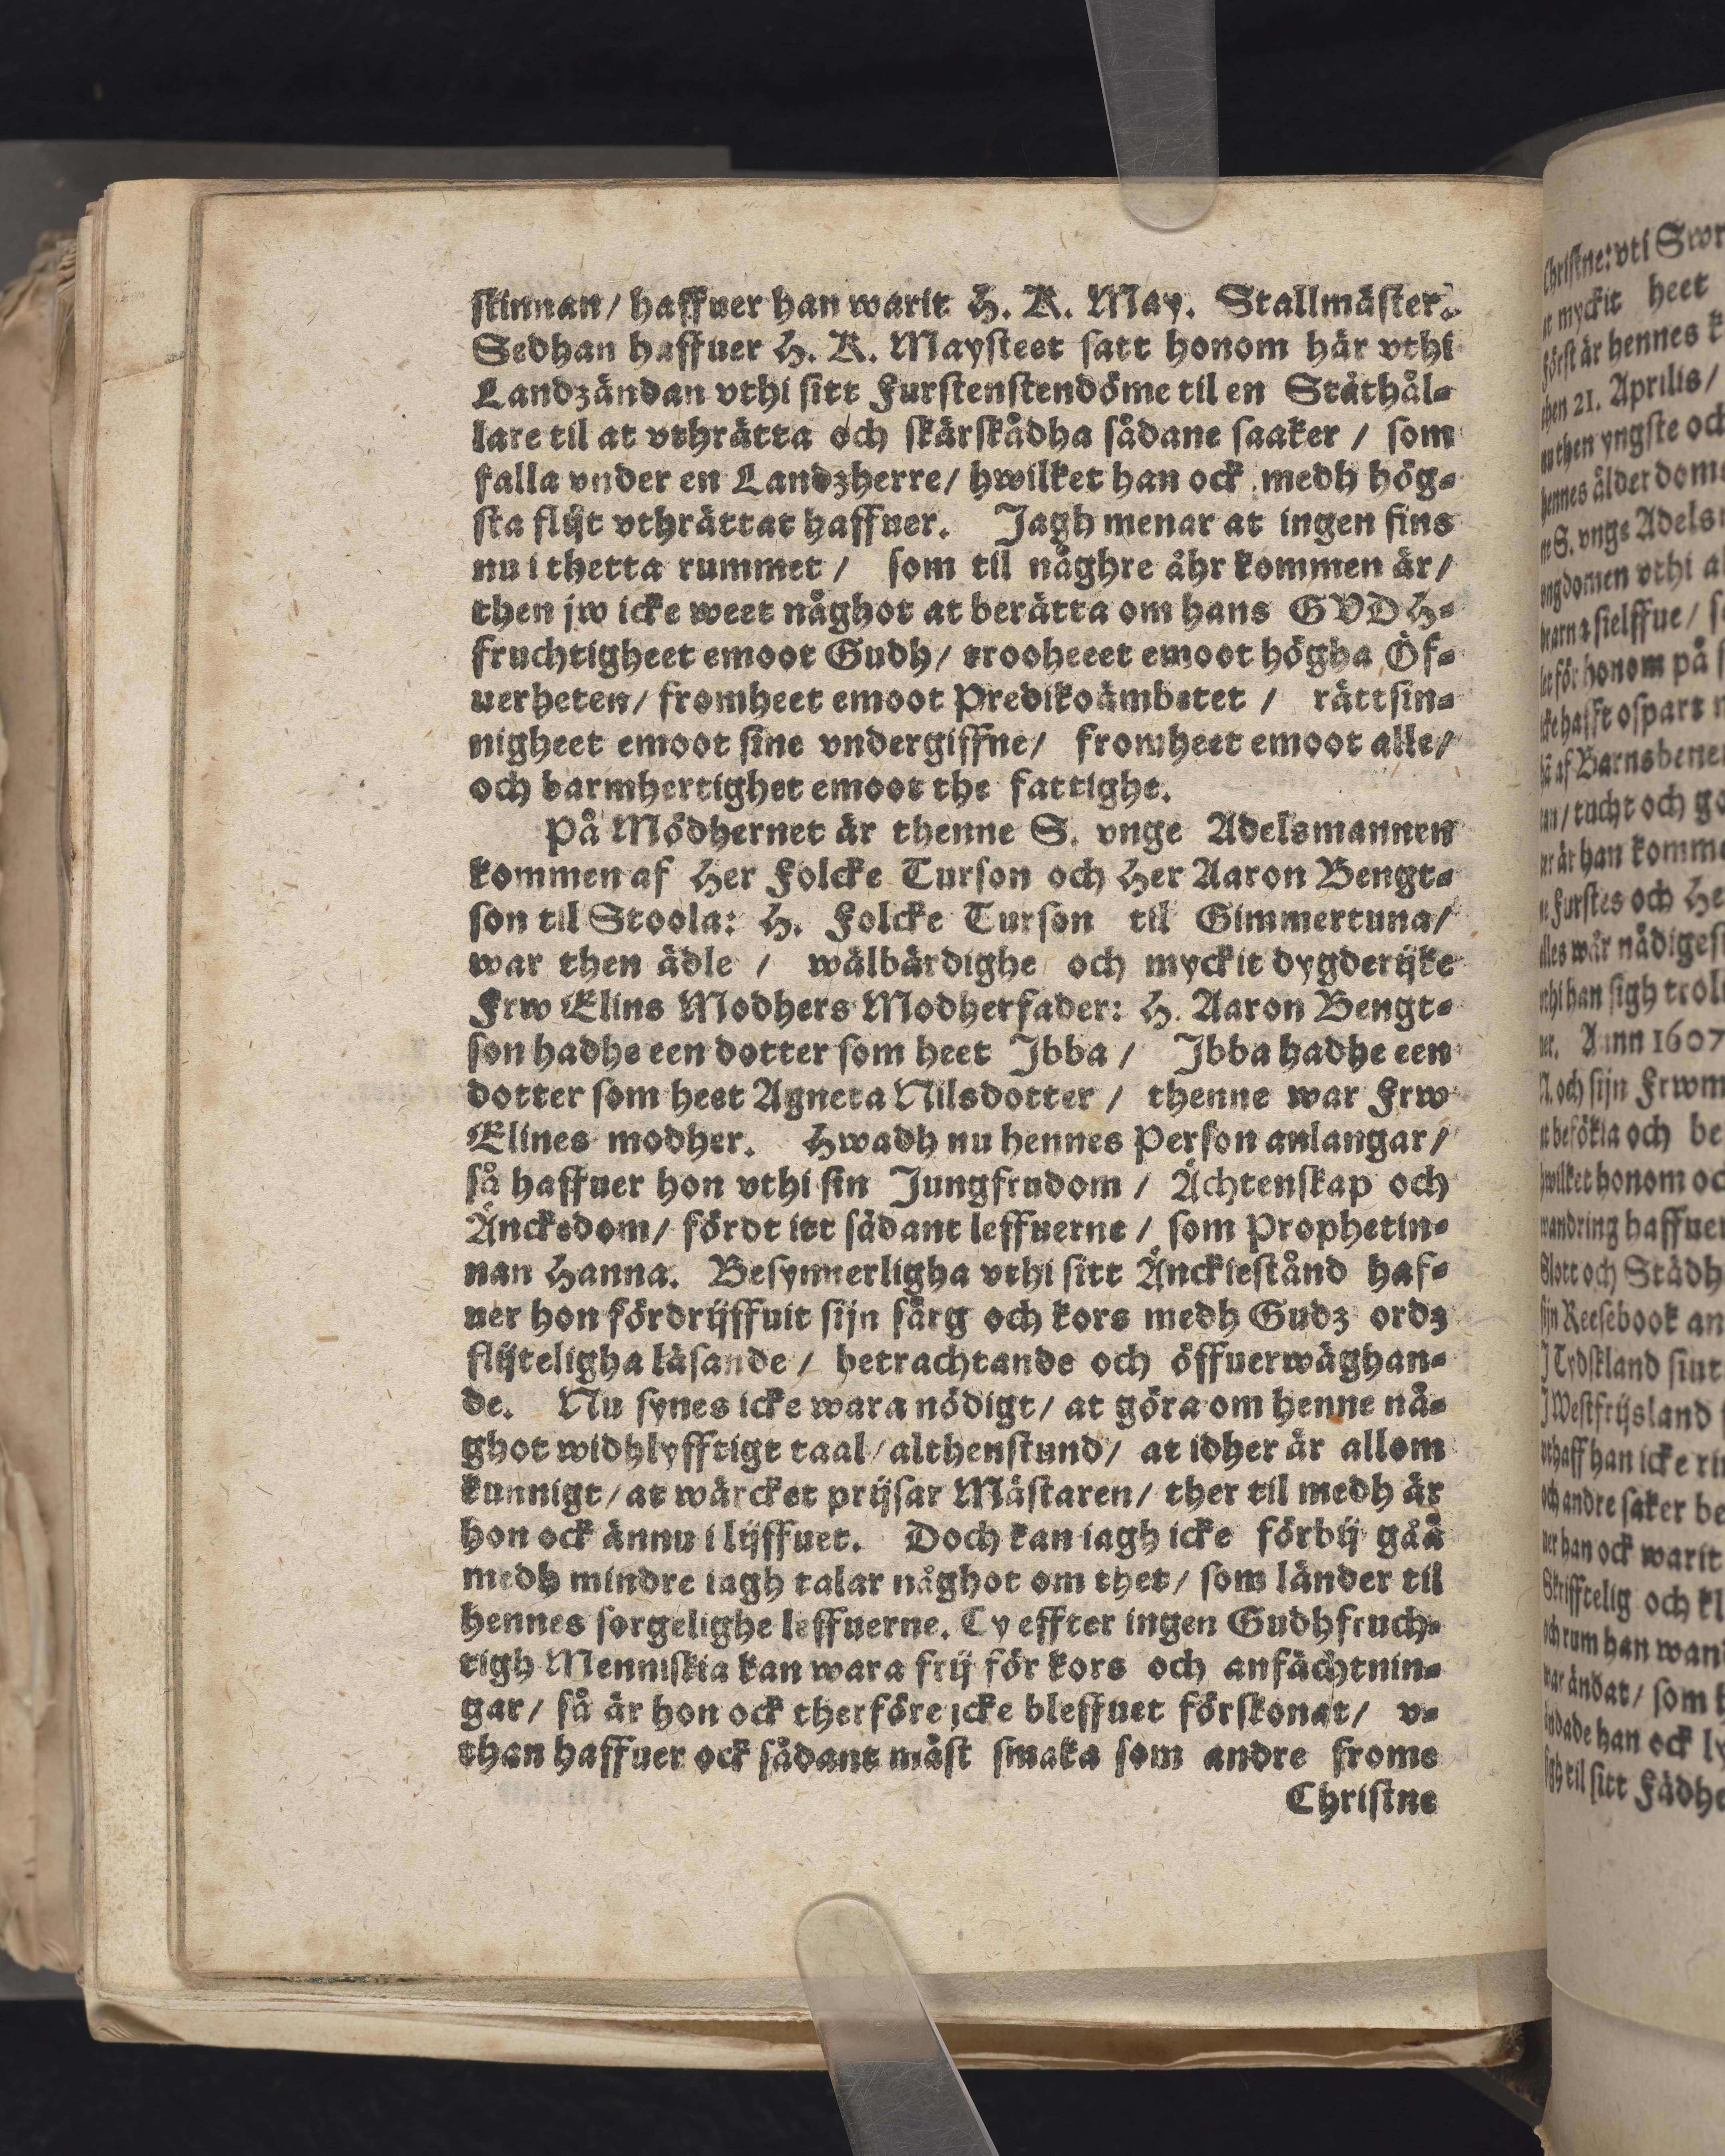 skinnan/ haffuer han warit H. K. May. Stallmäster.
Sedhan haffuer H. K. Maysteet satt honom här vthi
Landzändan vthi sitt Furstenstendöme til en Ståthål=
lare til at vthrätta och skärskådha sådane saaker / som
falla vnder en Landzherre/ hwilket han ock medh hög=
sta flijt vthrättat haffuer. Jagh menar at ingen fins
nu i thetta rummet / som til någhre åhr kommen är/
then jw icke weet någhot at berätta om hans GVDH=
fruchtigheet emoot Gudh/ trooheeet emoot högha Öf=
uerheten/ fromheet emoot Predikoämbetet / rättsin=
nigheet emoot sine vndergiffne/ fromheet emoot alle/
och barmhertighet emoot the fattighe.
På Mödhernet är thenne S. vnge Adelsmannen
kommen af Her Folcke Turson och Her Aaron Bengt=
son til Stoola: H. Folcke Turson til Gimmertuna/
war then ädle / wälbärdighe och myckit dygderijke
Frw Elins Modhers Modherfader: H. Aaron Bengt=
son hadhe een dotter som heet Jbba / Jbba hadhe een
dotter som heet Agneta Nilsdotter / thenne war Frw
Elines modher. Hwadh nu hennes Person anlangar/
så haffuer hon vthi sin Jungfrudom / Ächtenskap och
Änckedom/ fördt itt sådant leffuerne / som Prophetin=
nan Hanna. Besynnerligha vthi sitt Änckiestånd haf=
uer hon fördrijffuit sijn sårg och kors medh Gudz ordz
flijteligha läsande / betrachtande och öffuerwäghan=
de. Nu synes icke wara nödigt/ at göra om henne nå=
ghot widhlyfftigt taal/ althenstund/ at idher är allom
kunnigt/ at wärcket prijsar Mästaren/ ther til medh är
hon ock ännu i lijffuet. Doch kan iagh icke förbij gåå
medh mindre iagh talar någhot om thet/ som länder til
hennes sorgelighe leffuerne. Ty effter ingen Gudhfruch=
tigh Menniskia kan wara frij för kors och anfächtnin=
gar/ så är hon ock therföre jcke bleffuet förskonat/ v=
than haffuer ock sådant måst smaka som andre frome
Christne
Christne: vti Swr
myckit heet
först är hennes k
then 21. Aprilis/
then yngste och
hennes ålderdoms
S. vnge Adels
vngdomen vthi a
sielffue/
för honom på
ospart
af Barnsbene
tucht och go
är han komme
Furstes och He
wår nådiges
han sigh trol
Ann 1607
och sijn Frwm
besökia och be
hwilket honom oc
wandring haffue
Slott och Städh
sijn Reesebook an
J Tydskland
J Westfrijsland
han icke
och andre saker be
han ock warit
Skrifftelig och kl
rum han wan
ändat/ som
han ock ly
sigh til sitt Fädhe